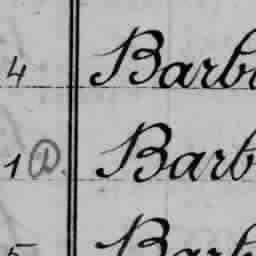 4 Barb
1 D. Barb
5 Barb